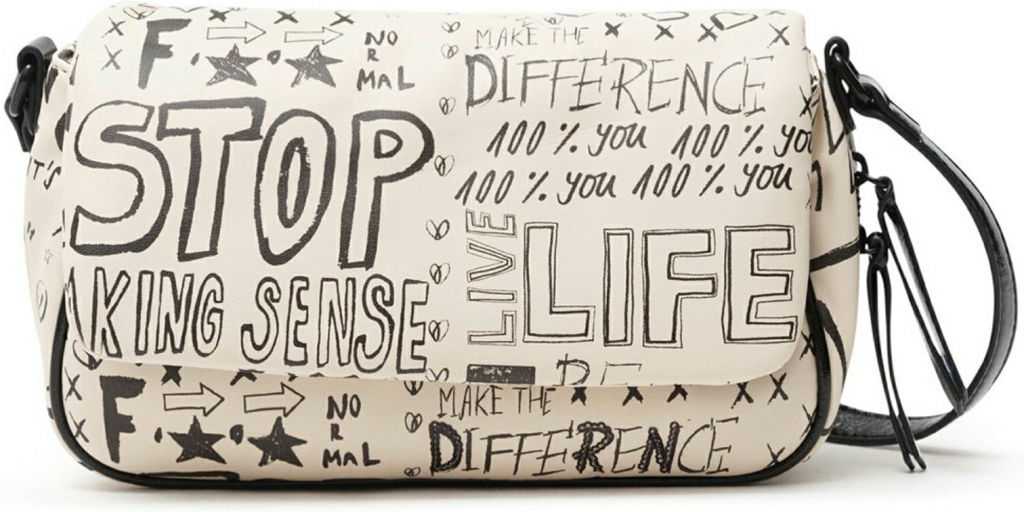 F
NO
R
MAL
STOP
AKING SENSE
MAKE THE
DIFFERENCE
100% you 100% you
100% you 100% you
LIVE
LIFE
T'S
F
NO
R
MAL
MAKE THE
DIFFERENCE